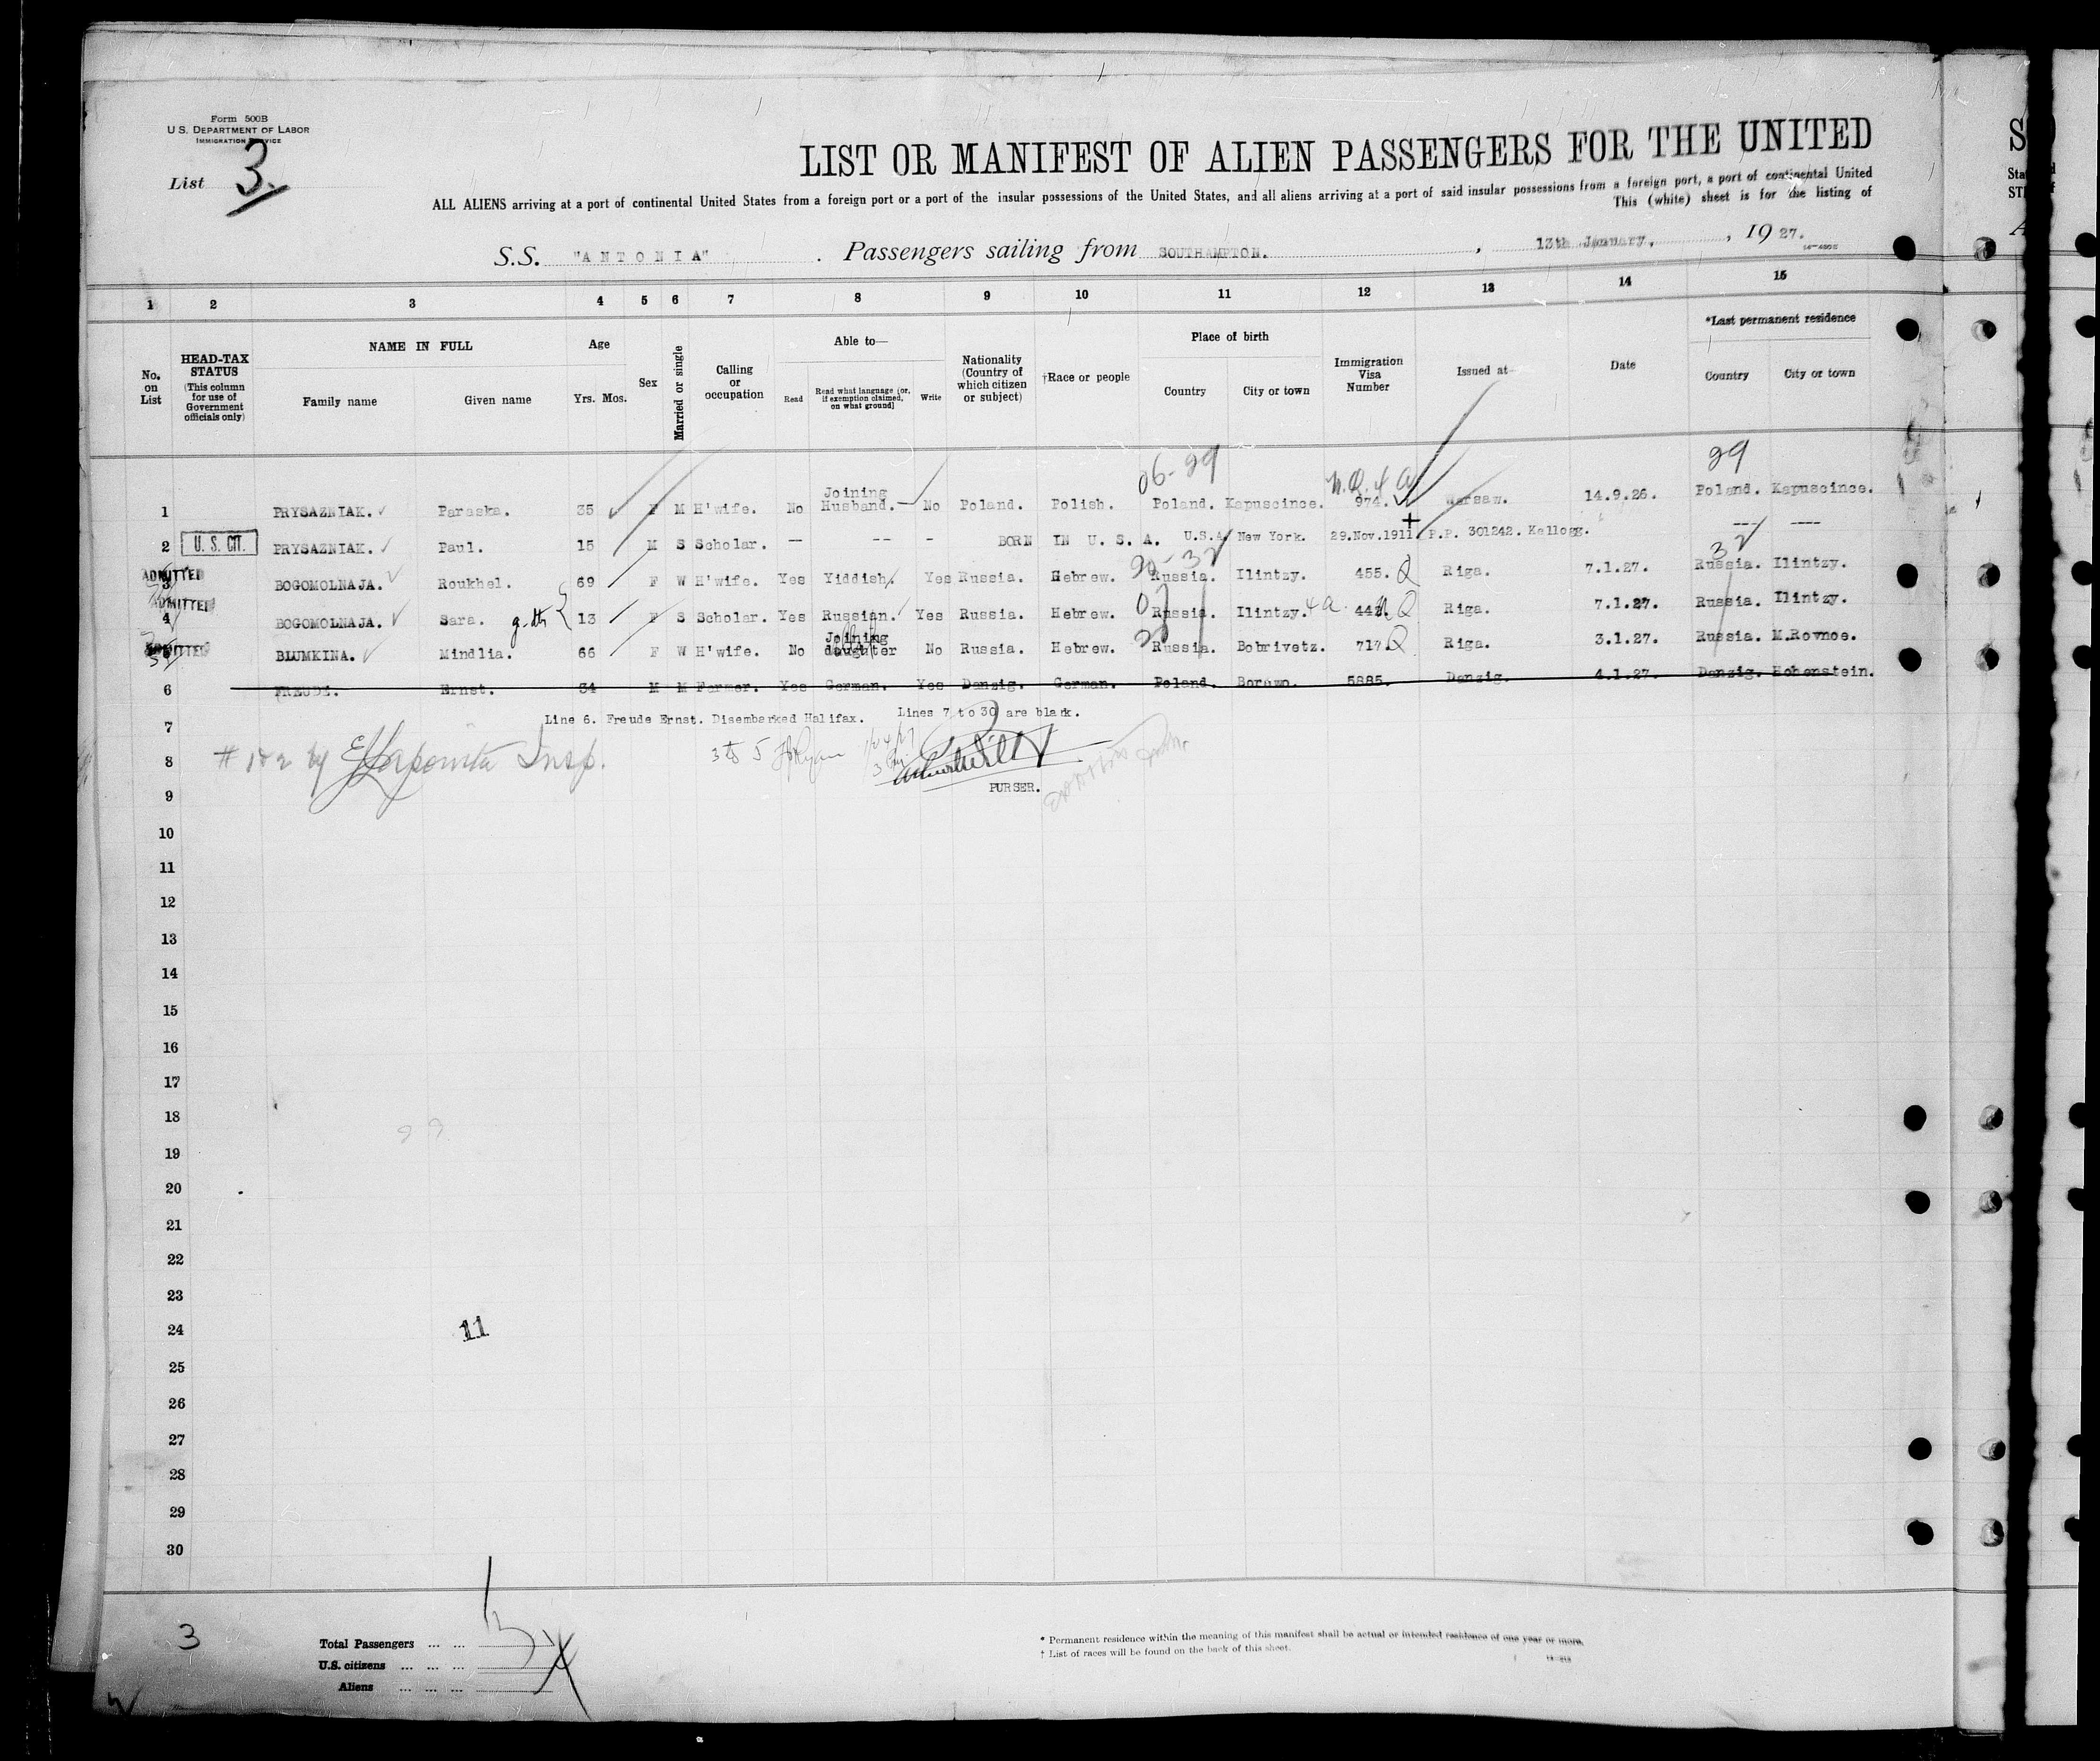 Form 500B
U.S. DEPARTMENT OF LABOR
IMMIGRATION SERVICE
List 3.
LIST OR MANIFEST OF ALIEN PASSENGERS FOR THE UNITED
ALL ALIENS arriving at a port of continental United States from a foreign port or a port of the insular possessions of the United States, and all aliens arriving at a port of said insular possessions from a foreign port, a port of continental United
This (white) sheet is for the listing of
S.S. "ANTONIA". Passengers sailing from SOUTHAMPTON., 13th January,, 1927.
1 2 3 4 5 6 7 8 9 10 11 12 13 14 15
No. on List
HEAD-TAX STATUS (This column for use of Government officials only)
NAME IN FULL
Family name Given name
Age
Yrs. Mos.
Sex
Married or single
Calling or occupation
Able to—
Read
Read what language (or, if exemption claimed, on what ground)
Write
Nationality (Country of which citizen or subject)
†Race or people
Place of birth
Country City or town
Immigration Visa Number
Issued at
Date
*Last permanent residence
Country City or town
06-29 N.Q.4a 29
1 PRYSAZNIAK. Paraska. 35 F M H'wife. No Joining Husband. No Poland. Polish. Poland. Kapuscince. 974. Warsaw. 14.9.26. Poland. Kapuscince.
2 U.S. CIT. PRYSAZNIAK. Paul. 15 M S Scholar. — -- - BORN IN U.S.A. U.S.A. New York. 29.Nov.1911. P.P. 301242. Kellogg. --- ----
32
ADMITTED 3 BOGOMOLNAJA. Roukhel. 69 F W H'wife. Yes Yiddish. Yes Russia. Hebrew. Russia. Ilintzy. 455. Q Riga. 7.1.27. Russia. Ilintzy.
ADMITTED 4 BOGOMOLNAJA. Sara. 13 F S Scholar. Yes Russian. Yes Russia. Hebrew. Russia. Ilintzy. 4a. Q Riga. 7.1.27. Russia. Ilintzy.
ADMITTED BLUMKINA. Mindlia. 66 F W H'wife. No Joining daughter No Russia. Hebrew. Russia. Bobrivetz. 717. Q Riga. 3.1.27. Russia. M.Rovnoe.
6 FREUDE. Ernst. 34 M M Farmer. Yes German. Yes Danzig. German. Poland. 5885. Danzig. 4.1.27. Danzig. Hohenstein.
Line 6. Freude Ernst. Disembarked Halifax. Lines 7 to 30 are blank.
7
8 # 1 & 2 by Insp. 3 to 5
PURSER.
9
10
11
12
13
14
15
16
17
18
19
20
21
22
23
24 11
25
26
27
28
29
30
3
Total Passengers ... ...
U.S. citizens ... ... ...
Aliens ... ... ...
* Permanent residence within the meaning of this manifest shall be actual or intended residence of one year or more.
† List of races will be found on the back of this sheet.